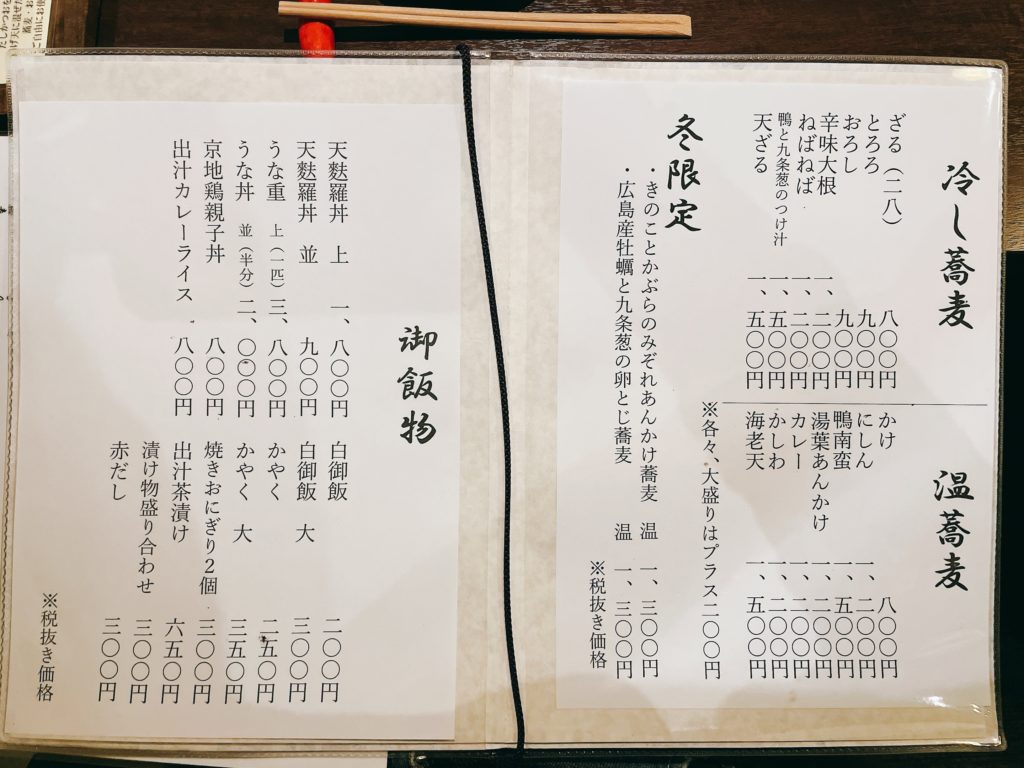 冷し蕎麦
ざる（二八） 八〇〇円
とろろ 九〇〇円
おろし 九〇〇円
辛味大根 一、二〇〇円
ねばねば 一、二〇〇円
鴨と九条葱のつけ汁 一、五〇〇円
天ざる 一、五〇〇円
温蕎麦
かけ 八〇〇円
にしん 一、二〇〇円
鴨南蛮 一、五〇〇円
湯葉あんかけ 一、二〇〇円
カレー 一、二〇〇円
かしわ 一、二〇〇円
海老天 一、五〇〇円
※各々、大盛りはプラス二〇〇円
冬限定
・きのことかぶらのみぞれあんかけ蕎麦 温 一、三〇〇円
・広島産牡蠣と九条葱の卵とじ蕎麦 温 一、三〇〇円
※税抜き価格
御飯物
天麩羅丼 上 一、八〇〇円
天麩羅丼 並 九〇〇円
うな重 上（一匹） 三、八〇〇円
うな丼 並（半分） 二、〇〇〇円
京地鶏親子丼 八〇〇円
出汁カレーライス 八〇〇円
白御飯 二〇〇円
白御飯 大 三〇〇円
かやく 二五〇円
かやく 大 三五〇円
焼きおにぎり2個 三〇〇円
出汁茶漬け 六五〇円
漬け物盛り合わせ 三〇〇円
赤だし 三〇〇円
※税抜き価格